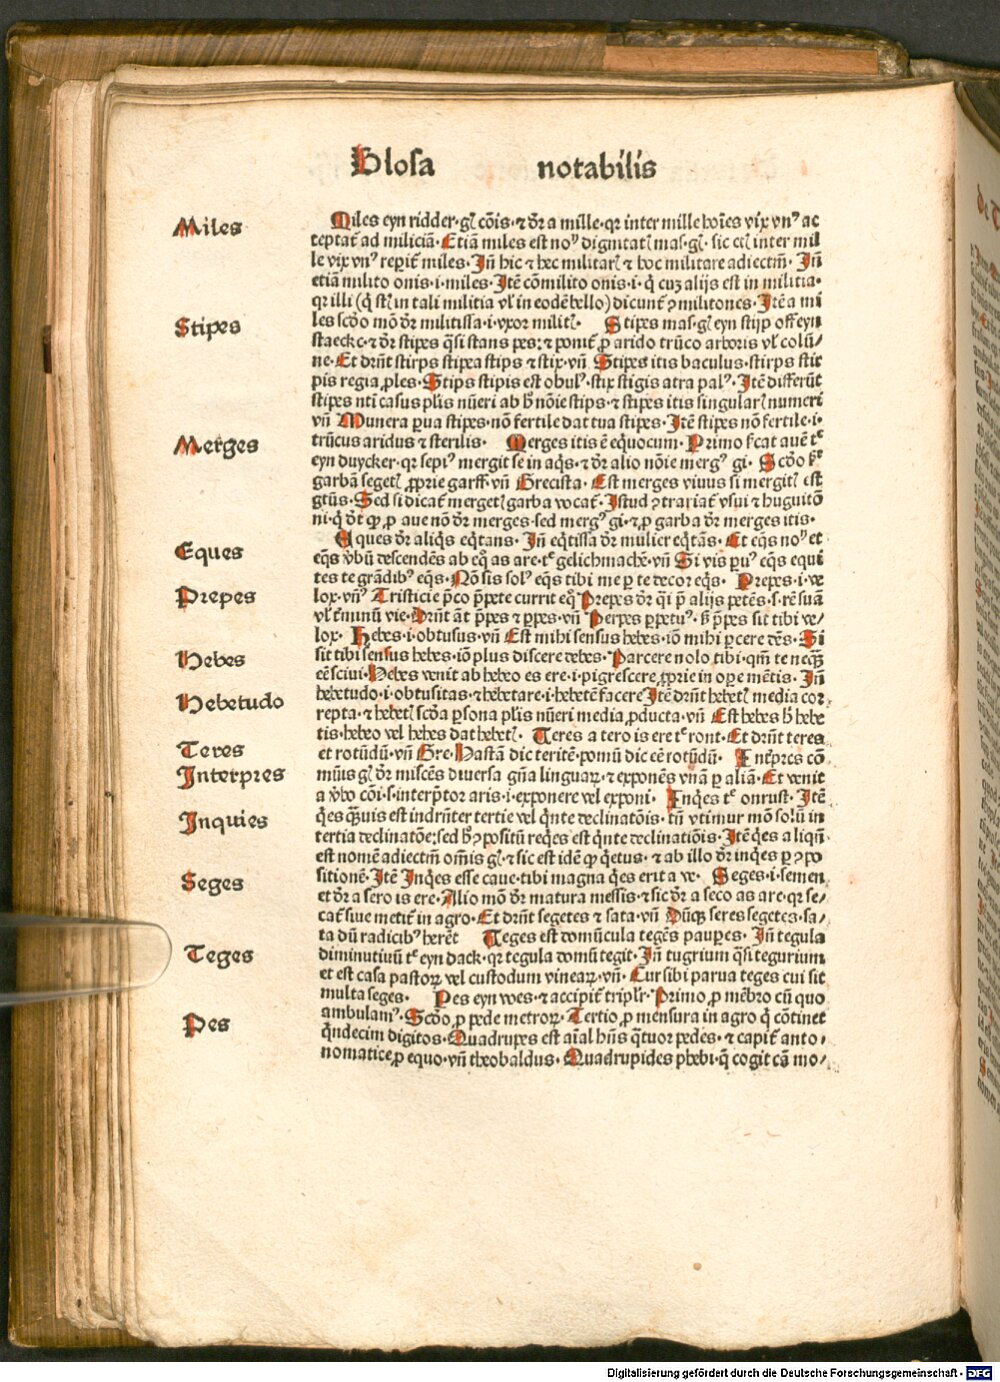 Glosa notabilis
Miles
Miles eyn ridder·gl̃ cōis·⁊ dr̄ a mille·qꝛ inter mille hoīes vix vnꝰ ac
teptat̄ ad miliciā·Etiā miles est noꝰ dignitatl̃ mas·gl̃· sic etl̃ inter mil
le vix vnꝰ reperit̄ miles·Jn̄ hic ⁊ hec militarl̃ ⁊ hoc militare adiectm̄· Jn̄
etiā milito onis·i·miles·Jtē cōmilito onis·i·q̄ cuꝫ alijs est in militia·
qꝛ illi (q̄ st̄ in tali militia vl̃ in eodē bello) dicunt̄ ꝯmilitones·Jtē a mi
Stipes
les scd̄o mō dr̄ militissa·i·vxor militl̃· Stipes mas·gl̃ eyn stijp off eyn
staeck·⁊ dr̄ stipes q̄si stans pes: ⁊ ponit̄ ꝓ arido trūco arboris vl̃ colū-
ne·Et drn̄t stirps stipea stips ⁊ stix·vn̄ Stipes itis baculus·stirps stir
pis regia ꝓles·Stips stipis est obulꝰ·stix stigis atra palꝰ·Jtē differūt
stipes nti casus plis nūeri ab h̄ nōie stips·⁊ stipes itis singularl̃ numeri
vn̄ Munera ꝑua stipes·nō fertile dat tua stipes·Jtē stipes nō fertile·i·
Merges
trūcus aridus ⁊ sterilis· Merges itis ē equocum·Primo sc̄at auē tͤ
eyn duycker·qꝛ sepiꝰ mergit se in aq̄s·⁊ dr̄ alio nōie mergꝰ gi· Scd̄o
garbā segetl̃ ꝓprie garff·vn̄ Grecista·Est merges viuus si mergitl̃ est
gtūs·Sed si dicat̄ mergetl̃ garba vocat̄·Jstud ꝯtrariat̄ vsui ⁊ huguitō
ni·q̄ dt̄ ꝙ ꝓ aue nō dr̄ merges·sed mergꝰ gi·⁊ ꝓ garba dr̄ merges itis·
Eques
Eques dr̄ aliq̄s eq̄tans· Jn̄ eq̄tissa dr̄ mulier eq̄tās· Et eq̄s noꝰ et
eq̄s vbū descendēs ab eq̄ as are·tͤ gelichmachē·vn̄ Si vis ꝑuꝰ eq̄s equi
tes te grādibꝰ eq̄s·Nō sis solꝰ eq̄s tibi me per te decor eq̄s· Prepes·i·ve
Prepes
lox·vn̄ Tristicie p̄co p̄pete currit eqꝰ Prepes dr̄ q̄i p̄ alijs petēs·s·rē suā
vl̃ t̄minū vie·Drn̄t āt p̄pes ⁊ ꝑpes·vn̄ Perpes ꝑpetuꝰ·s̄ p̄pes sit tibi ve-
lox· Hebes·i·obtusus·vn̄ Est mihi sensus hebes·iō mihi ꝑcere dēs·Si
Hebes
sit tibi sensus hebes·iō plus discere debes·Parcere nolo tibi·qm̄ te neqꝫ
eē sciui·Hebes venit ab hebeo es ere·i·pigrescere ꝓprie in oꝑe mētis· Jn̄
Hebetudo
hebetudo·i·obtusitas·⁊ hebetare·i·hebetē facere Jtē drn̄t hebetl̃ media cor
repta·⁊ hebetl̃ scd̄a ꝑsona plis nūeri media ꝓducta·vn̄ Est hebes h̄ hebe
tis·hebeo vel hebes dat hebetl̃· Teres a tero is ere tͤ ront·Et drn̄t teres
Teres
et rotūdū·vn̄ Gre·Hastā dic teritē·pomū dic eē rotūdū· Jnt̄pres cō
Interpres
mūis gl̃ dr̄ miscēs diuersa gn̄a linguaꝝ·⁊ exponēs vnā ꝑ aliā·Et venit
a vbo cōi·s·interp̄tor aris·i·exponere vel exponi· Jnq̄es tͤ onrust·Jtē
Inquies
q̄es q̄uis est indrn̄ter tertie vel q̄nte declinatōis·tn̄ vtimur mō solū in
tertia declinatōe: sed h̄ ꝯpositū req̄es est q̄nte declinatiōis·Jtē q̄es a liqn̄
est nomē adiectm̄ om̄is gl̃·⁊ sic est idē ꝙ q̄etus·⁊ ab illo dr̄ inq̄es ꝑ ꝯpo
Seges
sitionē·Jtē Jnq̄es esse caue·tibi magna q̄es erit a ve· Seges·i·semen
et dr̄ a sero is ere·Alio mō dr̄ matura messis·⁊ sic dr̄ a seco as are·qꝛ se-
cat̄ siue metit̄ in agro·Et drn̄t segetes ⁊ sata·vn̄ Dūqꝫ seres segetes·sa-
ta dū radicibꝰ herēt Teges est domūcula tegēs pauꝑes·Jn̄ tegula
Teges
diminutiuū tͤ eyn dack·qꝛ tegula domū tegit·Jn̄ tugrium q̄si tegurium
et est casa pastoꝝ vel custodum vineaꝝ·vn̄ Cur sibi parua teges cui sit
multa seges· Pes eyn voes·⁊ accipit̄ triplr̄·Primo ꝓ mēbro cū quo
Pes
ambulamꝰ·Scd̄o ꝓ pede metroꝝ·Tertio ꝓ mensura in agro q̄ cōtinet
q̄ndecim digitos·Quadrupes est aīal hn̄s q̄tuor pedes·⁊ capit̄ anto-
nomatice ꝓ equo·vn̄ theobaldus·Quadrupides phebi·q̄ cogit cā mo-
Digitalisierung gefördert durch die Deutsche Forschungsgemeinschaft - DFG